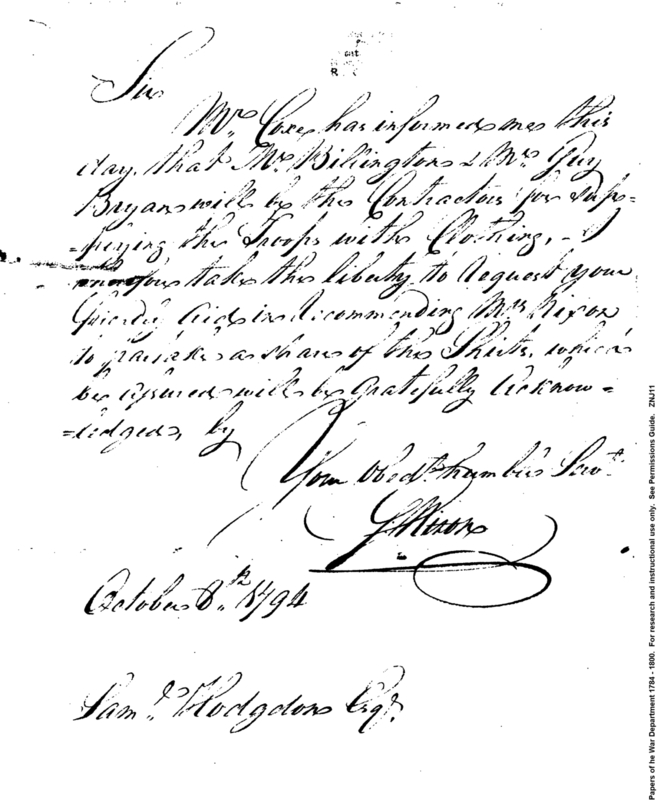 Sir
Mr. Coxe has informed me this
day, that Mr. Billington & Mr. Guy
Bryan will be the Contractors for sup=
=plying the Troops with Clothing, - I
take the liberty to request your
friendly Aid in recommending Mrs Nixon
to partake a share of the Shirts, which
be assured will be gratefully Acknow=
=ledged, by
Your Obedt. humble Servt.
Nixon
October 8th. 1794
Saml. Hodgdon Esqr.
Papers of he War Department 1784 - 1800. For research and instructional use only. See Permissions Guide. ZNJ11